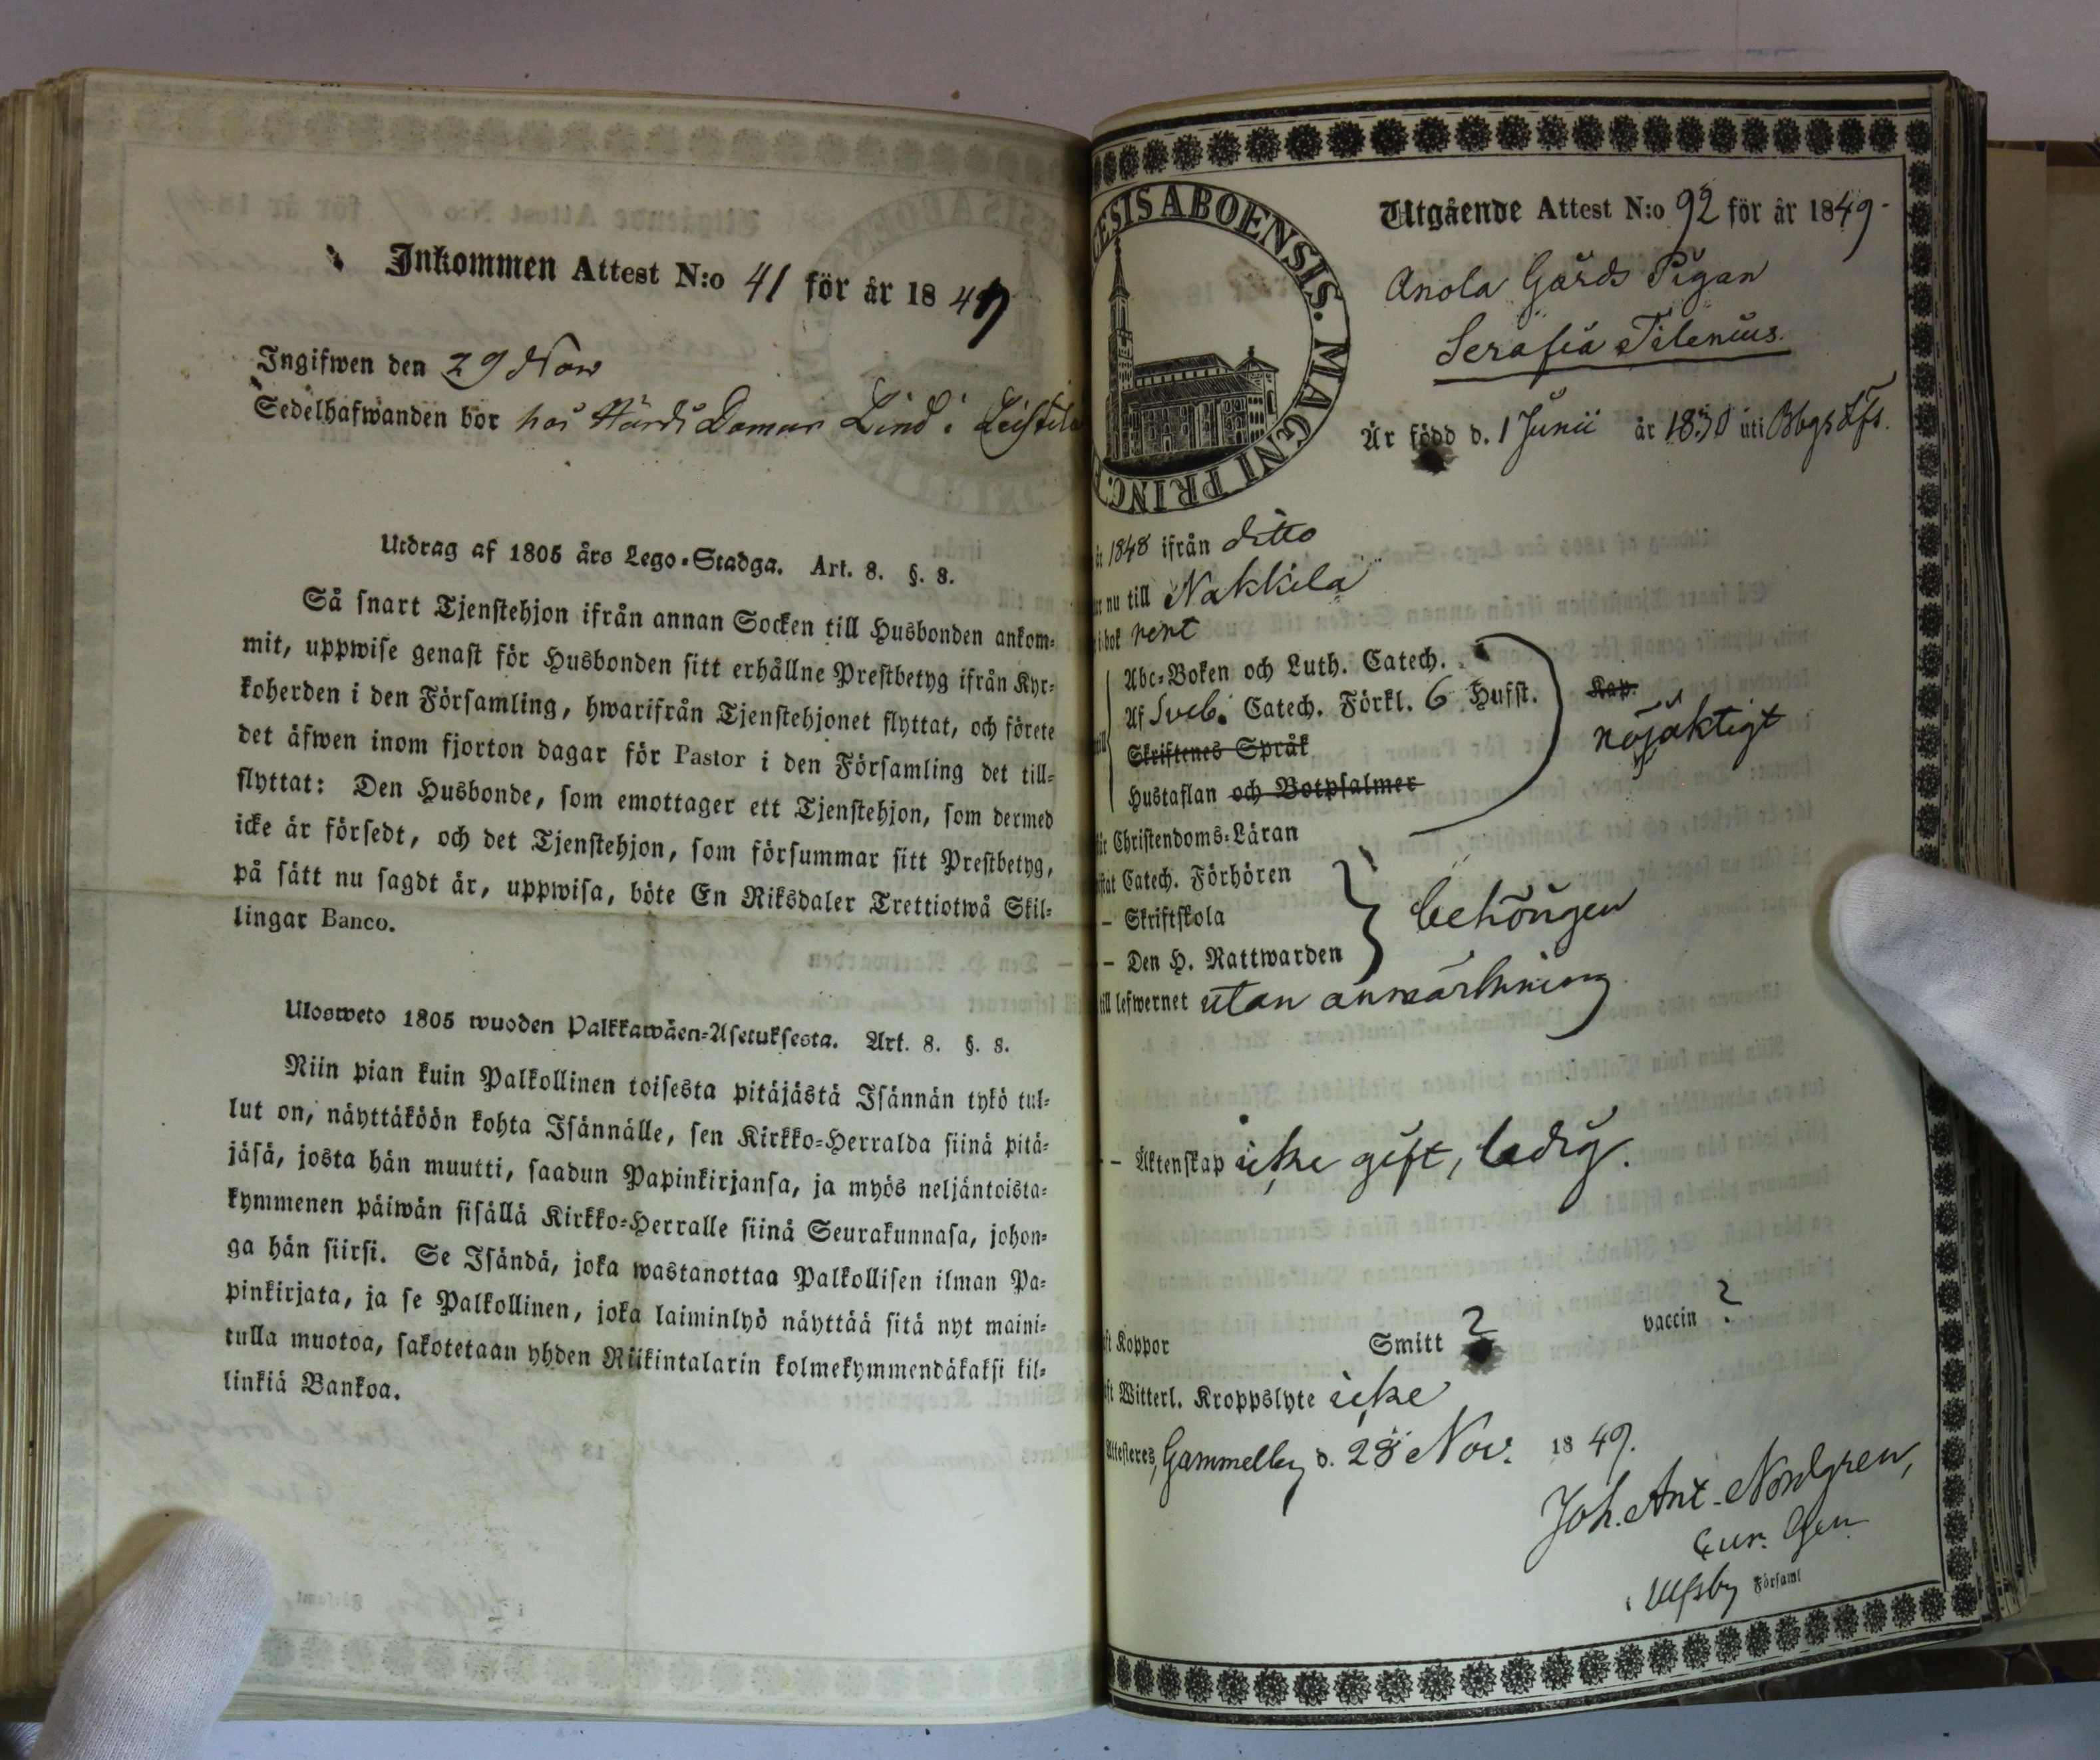 Inkommen Attest N:o 41 för år 1849
Ingifwen den 29 Nov
Sedelhafwanden bor hos Härds Domar Lind i Leistila
Utdrag af 1805 års Lego-Stadga. Art. 8. §. 8.
Så snart Tjenstehjon ifrån annan Socken till Husbonden ankom-
mit, uppwise genast för Husbonden sitt erhållne Prestbetyg ifrån Kyr-
koherden i den Församling, hwarifrån Tjenstehjonet flyttat, och förete
det äfwen inom fjorton dagar för Pastor i den Församling det till-
flyttat: Den Husbonde, som emottager ett Tjenstehjon, som dermed
icke är försedt, och det Tjenstehjon, som försummar sitt Prestbetyg,
på sätt nu sagdt är, uppwisa, böte En Riksdaler Trettiotwå Skil-
lingar Banco.
Ulosweto 1805 wuoden Palkkawäen-Asetuksesta. Art. 8. §. 8.
Niin pian kuin Palkollinen toisesta pitäjästä Isännän tykö tul-
lut on, näyttäköön kohta Isännälle, sen Kirkko-Herralda siinä pitä-
jäsä, josta hän muutti, saadun Papinkirjansa, ja myös neljäntoista-
kymmenen päiwän sisällä Kirkko-Herralle siinä Seurakunnasa, johon-
ga hän siirsi. Se Isändä, joka wastanottaa Palkollisen ilman Pa-
pinkirjata, ja se Palkollinen, joka laiminlyö näyttää sitä nyt maini-
tulla muotoa, sakotetaan yhden Riikintalarin kolmekymmendäkaksi kil-
linkiä Bankoa.
ESIS ABOENSIS. MAGNI PRINC.
Utgående Attest N:o 92 för år 1849-
Anola Gårds Pigan
Serafia Tilenius.
Är född d. 1 Junii år 1830 uti Bbgs Lfs.
år 1848 ifrån ditto
nu till Nakkila
i bok rent
Abc-Boken och Luth. Catech.
Af Sveb. Catech. Förkl. 6 Hufst. Kap.
nöjaktigt
Skriftenes Språk
Hustaflan och Botpsalmer
Christendoms-Läran
Catech. Förhören
– Skriftskola
behörigen
– Den H. Nattwarden
till lefwernet utan anmärkning
– Äktenskap icke gift, ledig.
Koppor Smitt ? vaccin ?
Witterl. Kroppslyte icke
Attesteres, Gammelby d. 28 Nov. 1849.
Joh. Ant. Nordgren,
Cur. Gen
i Ulfsby Församl